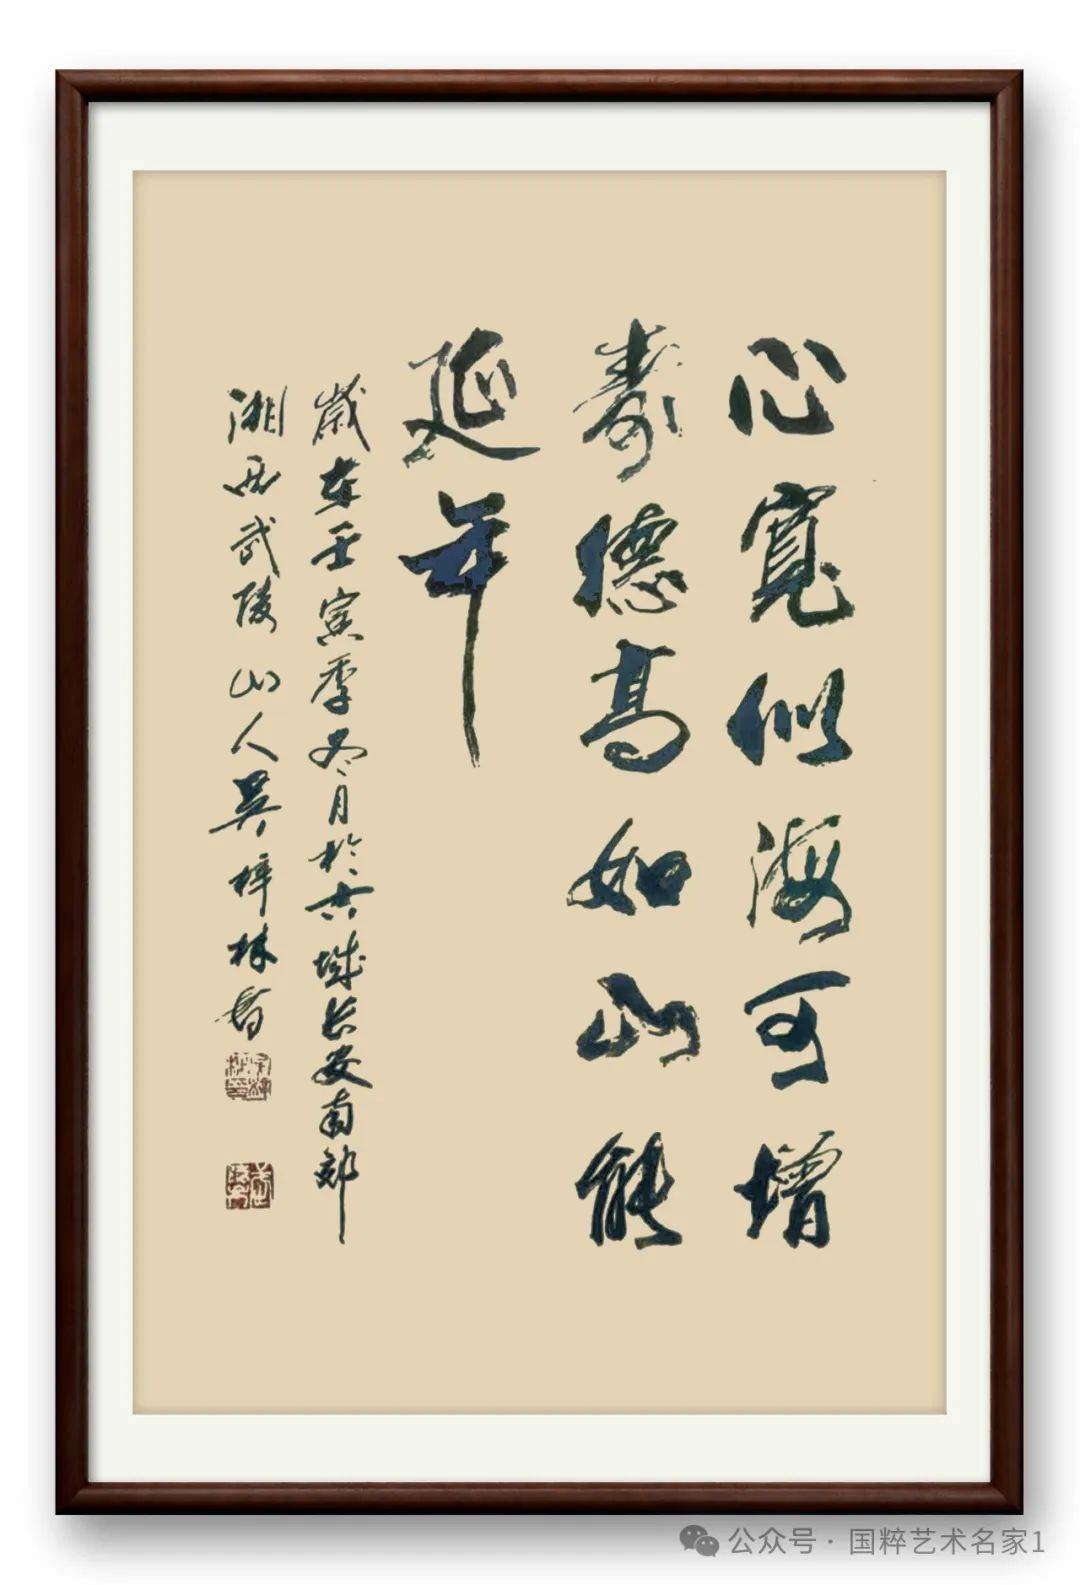 心寬似海可增
壽德高如山能
延年
歲在壬寅季冬月於古城长安南郊
湘西武陵山人吴梓林書
公众号·国粹艺术名家1